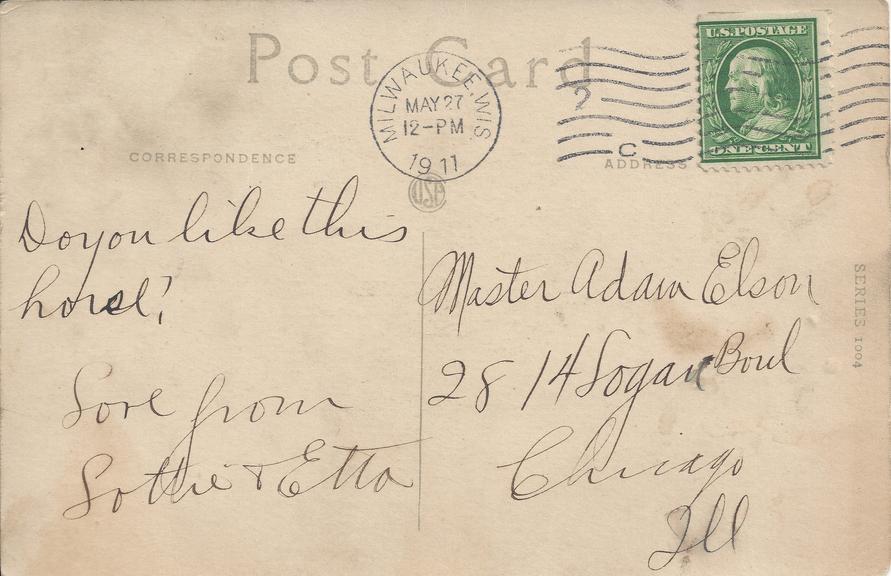 Post Card
MILWAUKEE, WIS.
MAY 27
12-PM
1911
2
C
U.S. POSTAGE
ONE CENT
CORRESPONDENCE
ADDRESS
Do you like this
horse?
Love from
Lottie & Etta
Master Adam Elson
2814 Logan Boul
Chicago
Ill
SERIES 1004